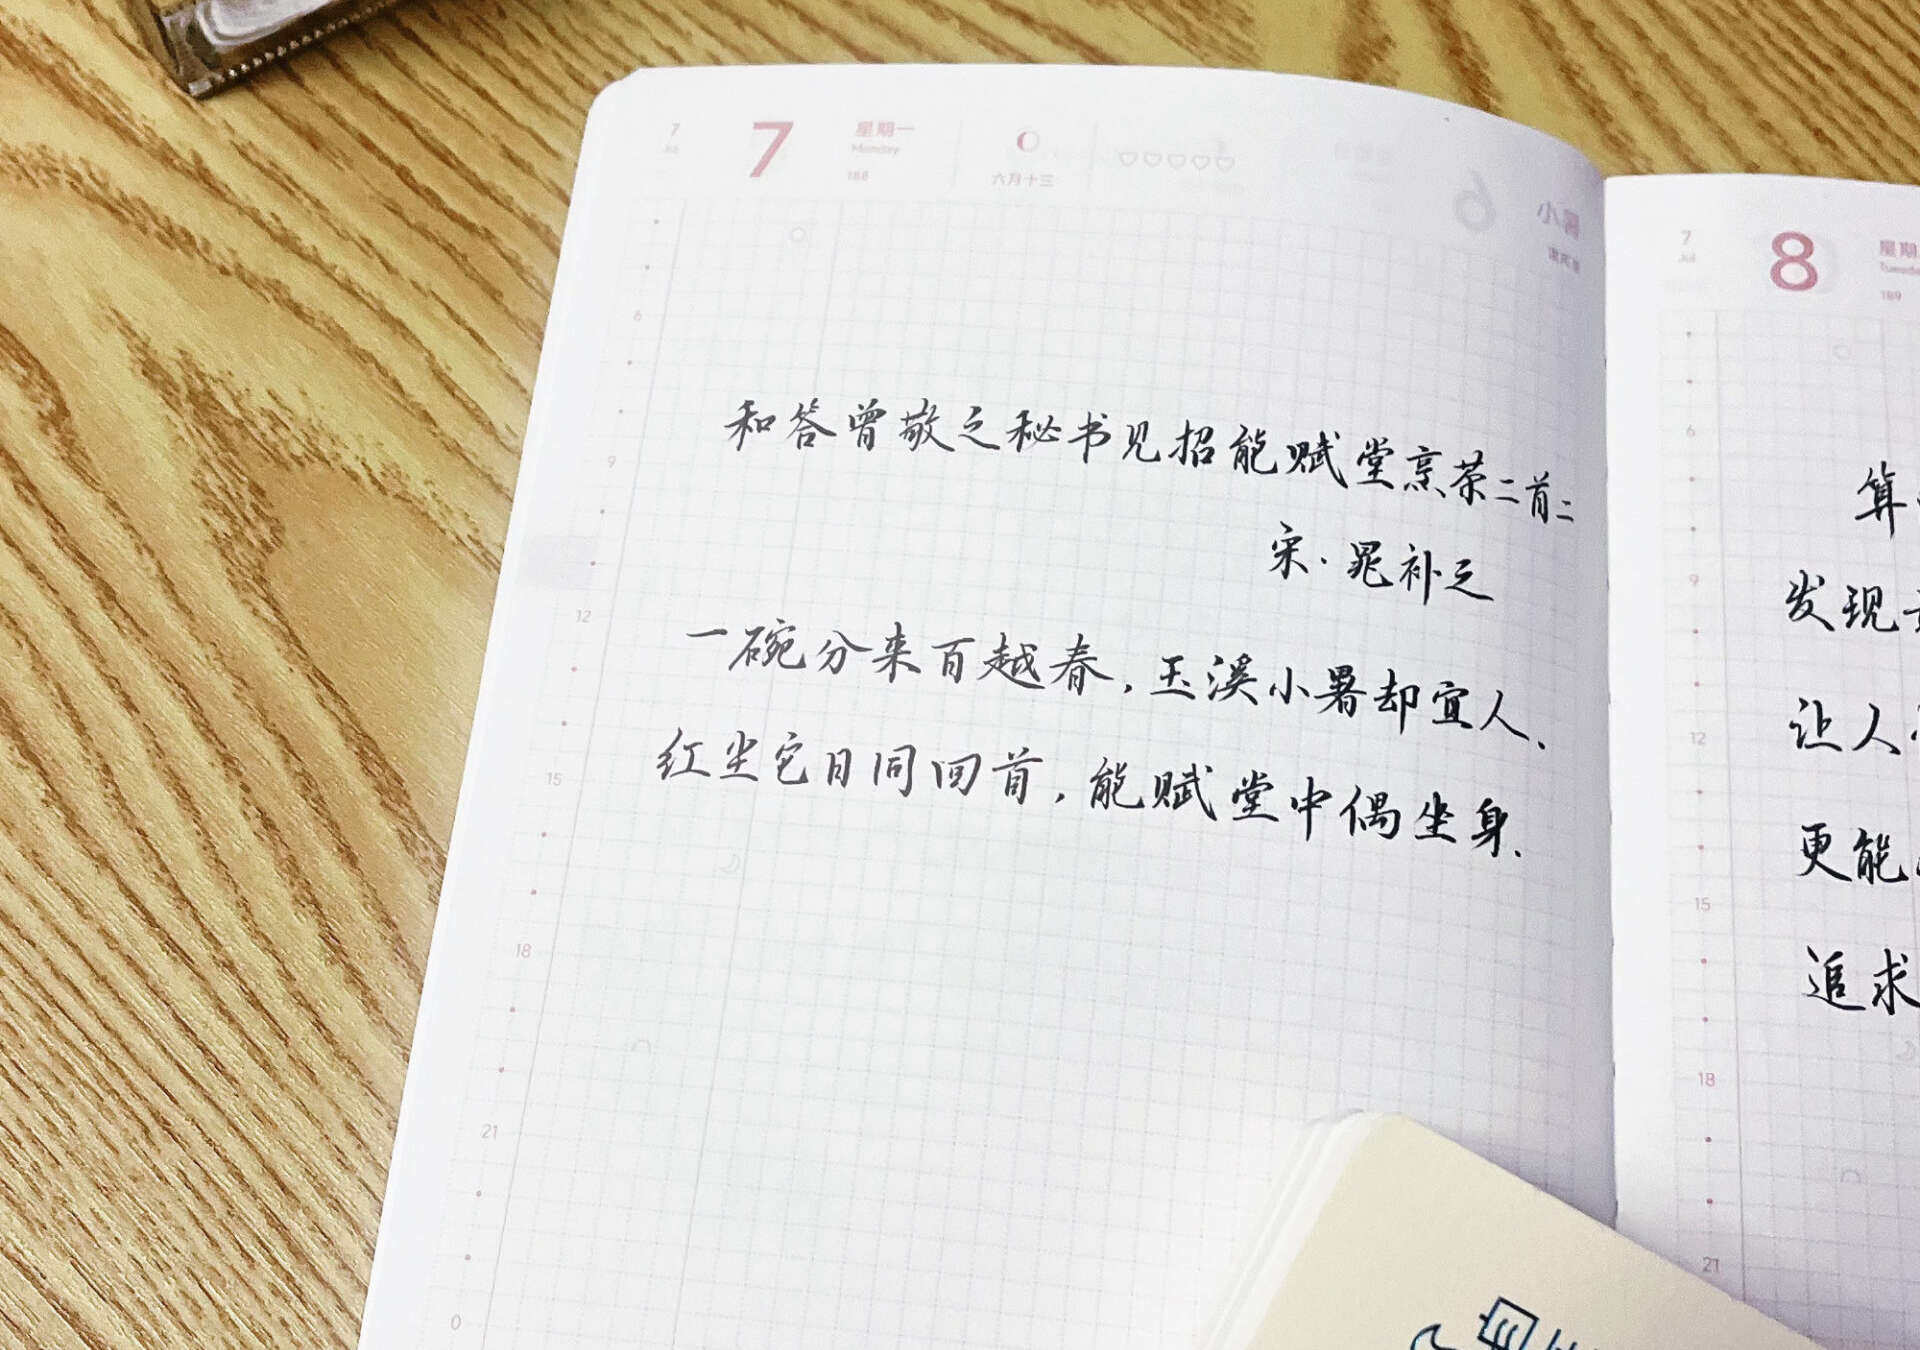 7 7 星期一 六月十三
Jul Monday
188
和答曾敬之秘书见招能赋堂烹茶二首二
宋·晁补之
一碗分来百越春，玉溪小暑却宜人．
红尘它日同回首，能赋堂中偶坐身．
6
9
12
15
18
21
0
6 小暑
7 8 星期
Jul Tuesd
189
算
发现
让人
更能
追求
6
9
12
15
18
21